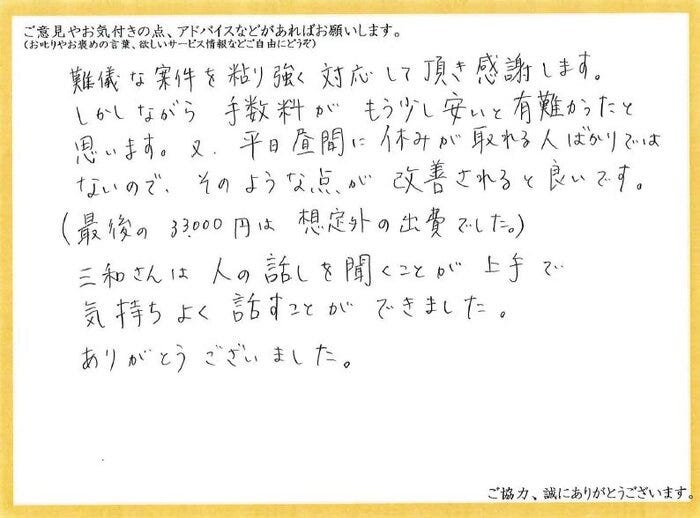 ご意見やお気付きの点、アドバイスなどがあればお願いします。
(お叱りやお褒めの言葉、欲しいサービス情報などご自由にどうぞ)
難儀な案件を粘り強く対応して頂き感謝します。
しかしながら 手数料が もう少し安いと有難かったと
思います。又、平日昼間に休みが取れる人ばかりでは
ないので、そのような点が 改善されると良いです。
(最後の 33,000円は 想定外の出費でした。)
三和さんは 人の話しを聞くことが 上手で
気持ちよく 話すことが できました。
ありがとうございました。
ご協力、誠にありがとうございます。